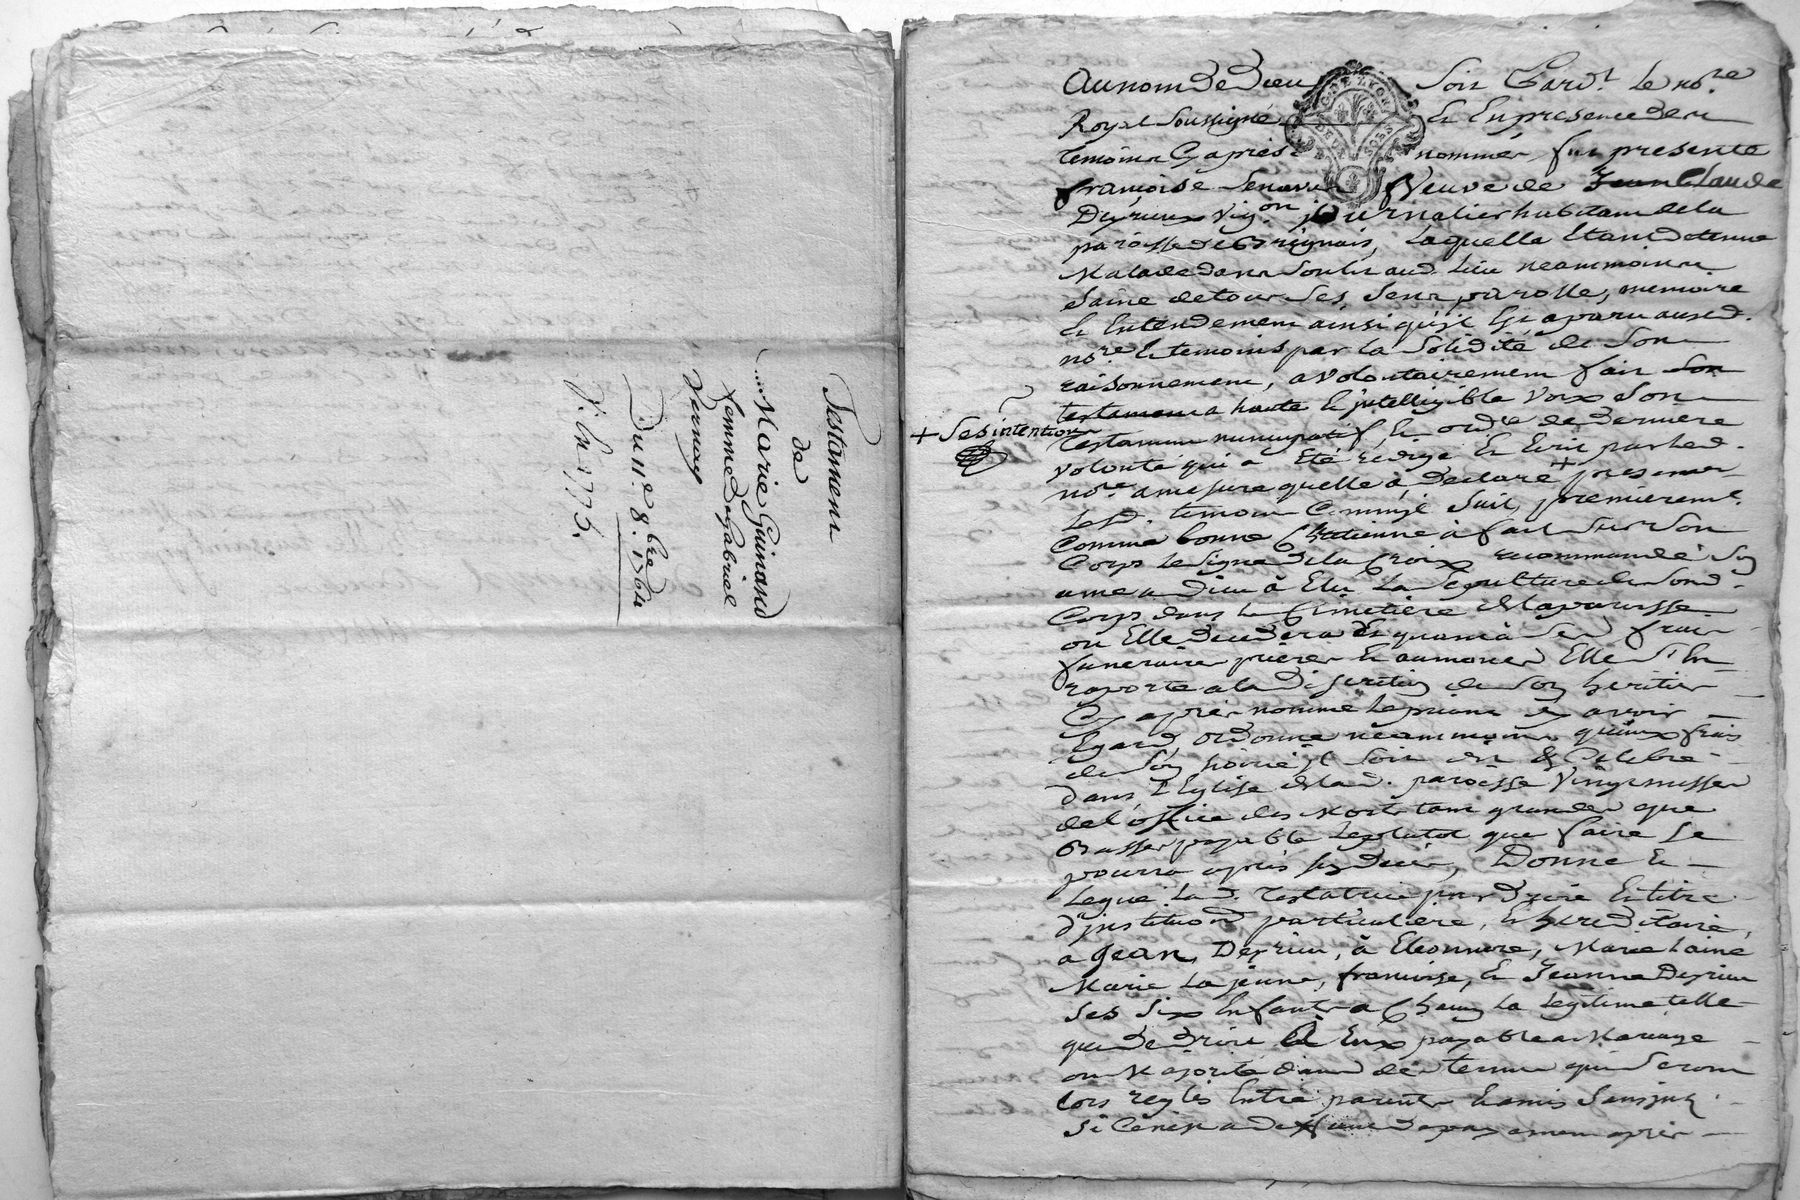 Testament
de
Marie Guinand
femme de gabriel
Vernay
Du 11.e 8.bre 1764
Au nom de Dieu Soit Pard.t le no.re
Royal Soussigné Et En presence des
temoins Cy apres nommés fut presente
françoise Veuve de Jean Claude
Deprieux Vig.on journalier habitant de la
paroisse de Grignais, laquelle Etant detenue
Malade dans Son lit aud. lieu neanmoins
Saine de tous Ses Sens parolle, memoire
Et Entendement ainsi qu'jl Est aparu aud.
no.re Et temoins par la Solidité de Son
raisonnement, a volontairement fait Son
testament a haute Et jntelligible Voix Son
+ Ses intentions
Testament nuncupatif, Et ord.re de derniere
volonté qui a Eté redigé Et Ecrit par led.
no.re a mesure quelle à declaré + presents
Lesd. temoins Comme Suit, premierem.t
Comme bonne Chretienne à fait Sur Son
Corps le Signe de la Croix recommandé Son
ame a Dieu à Elu La Sepulture de Sond.
Corps dans le Cimetiere de la paroisse
ou Elle decedera Et quant à Ses frais
funeraires prieres Et aumones Elle S'En
raporte a la discretion de Son heritier
Cy apres nommé le priant d'y avoir
Egard, ordonne neanmoins qu'aux frais
de Son hoirie jl Soit dit & Celebré
dans l'Eglise de lad. paroisse Vingt messes
de l'office des Morts tant grandes que
Basses payable le plutot que faire Se
pourra après Son decés, Donne Et
Legue Lad. testatrice par droit Et titre
d'jnstitution particuliere, Et hereditaire,
a Jean Deprieu, à Eleonnore, Marie lainé
Marie La jeune, francoise, Et Jeanne Deprieu
Ses Six Enfants a Chacun La legitime telle
que de droit à Eux payable a Mariage
ou Majorité dans des termes qui Seront
lors reglés Entre parents Et amis Sans jnt.
Si Ce n'est a deffaut de payement après